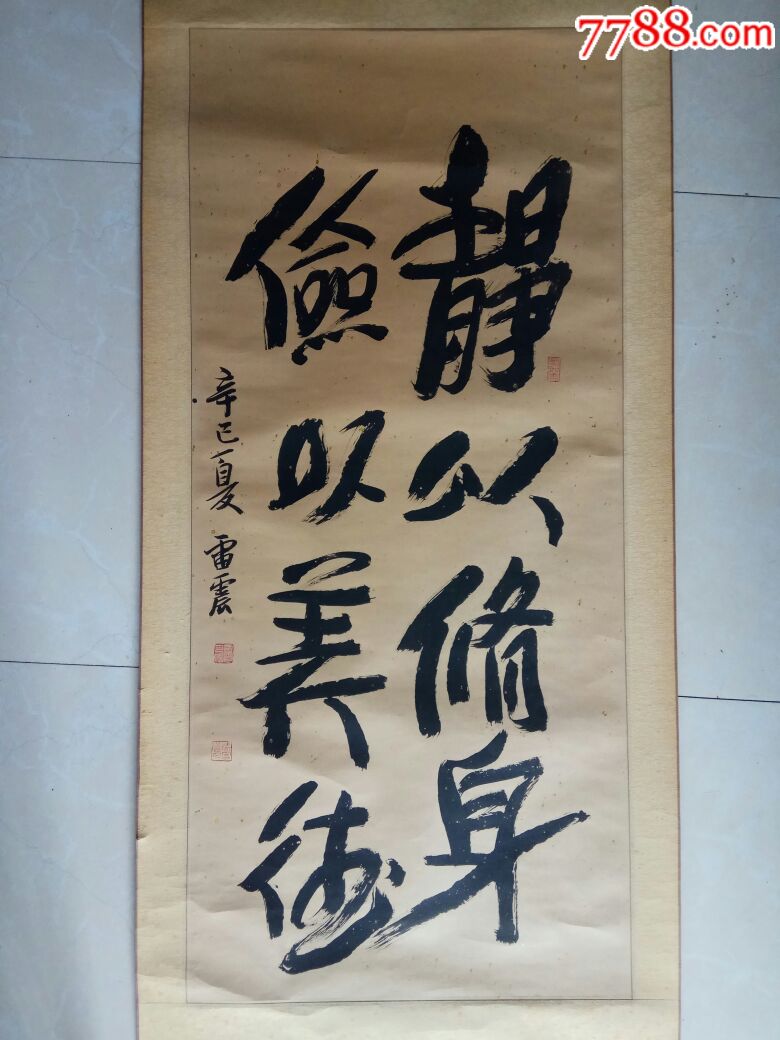 7788.com
靜以脩身
儉以美德
辛巳夏 雷震